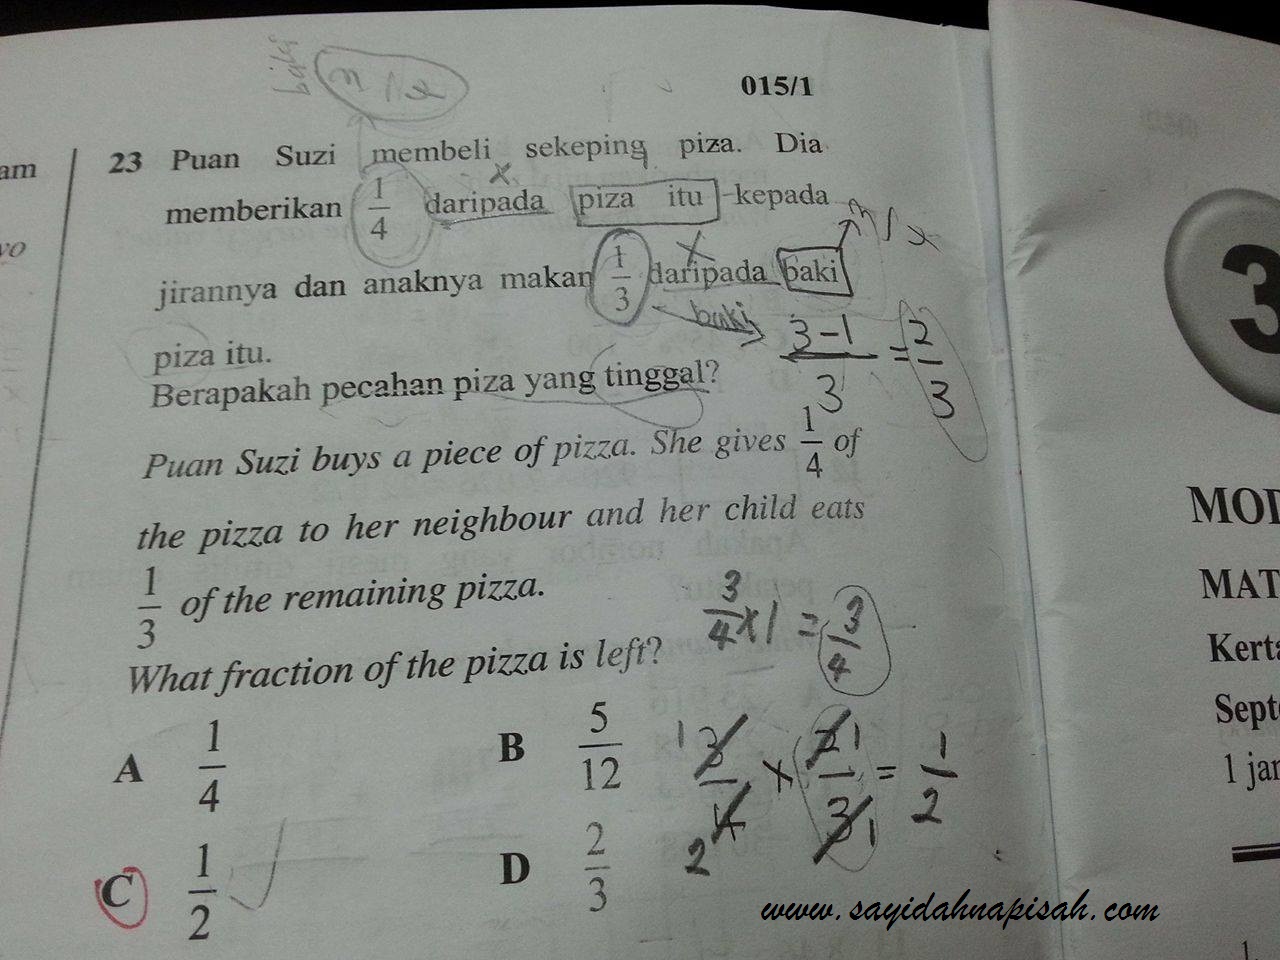 015/1
am
23 Puan Suzi membeli sekeping piza. Dia
memberikan 1/4 daripada piza itu kepada
jirannya dan anaknya makan 1/3 daripada baki
piza itu.
baki
3-1/3 = 2/3
Berapakah pecahan piza yang tinggal?
Puan Suzi buys a piece of pizza. She gives 1/4 of
the pizza to her neighbour and her child eats
1/3 of the remaining pizza.
3/4 x 1 = 3/4
What fraction of the pizza is left?
A 1/4
B 5/12
C 1/2
D 2/3
3/4 x 2/3 = 1/2
3
MOD
MAT
Kerta
Septe
1 jam
www.sayidahnapisah.com